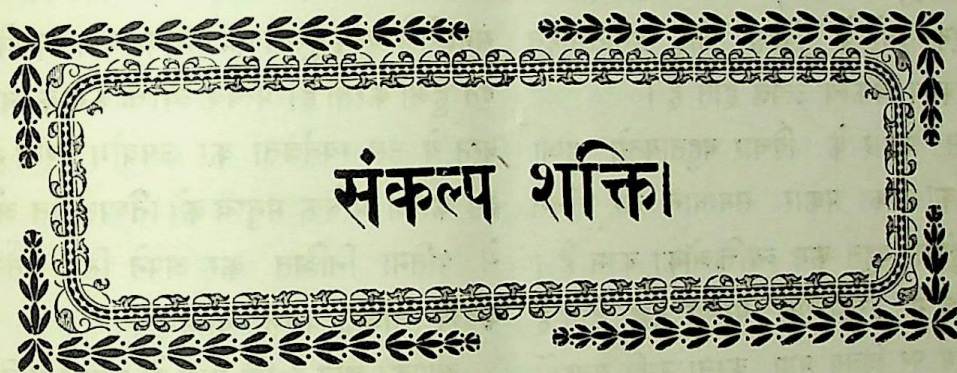 संकल्प शक्ति।